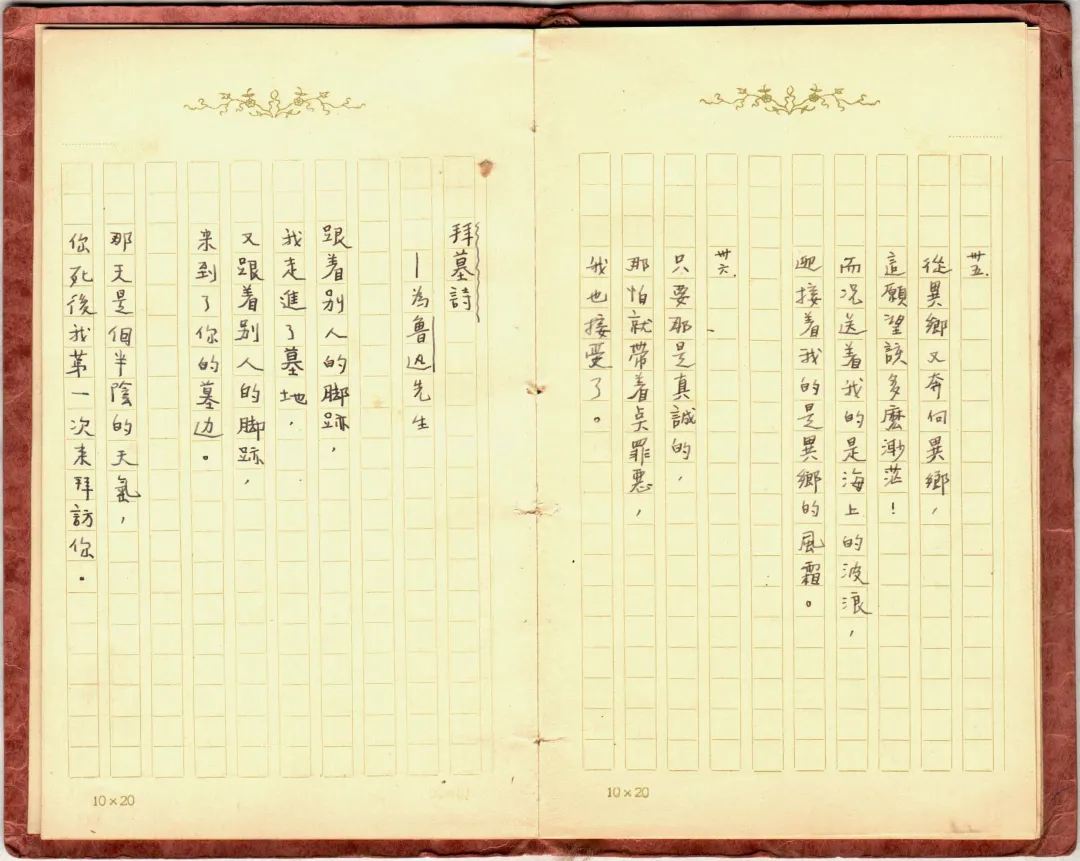 卅五.
從異鄉又奔何異鄉，
這願望該多麽渺茫！
而况送着我的是海上的波浪，
迎接着我的是異鄉的風霜。
卅六.
只要那是真誠的，
那怕就帶着点罪惡，
我也接受了。
10×20
拜墓詩
—為魯迅先生
跟着别人的脚跡，
我走進了墓地，
又跟着别人的脚跡，
来到了你的墓边。
那天是個半陰的天氣，
你死後我第一次来拜訪你。
10×20